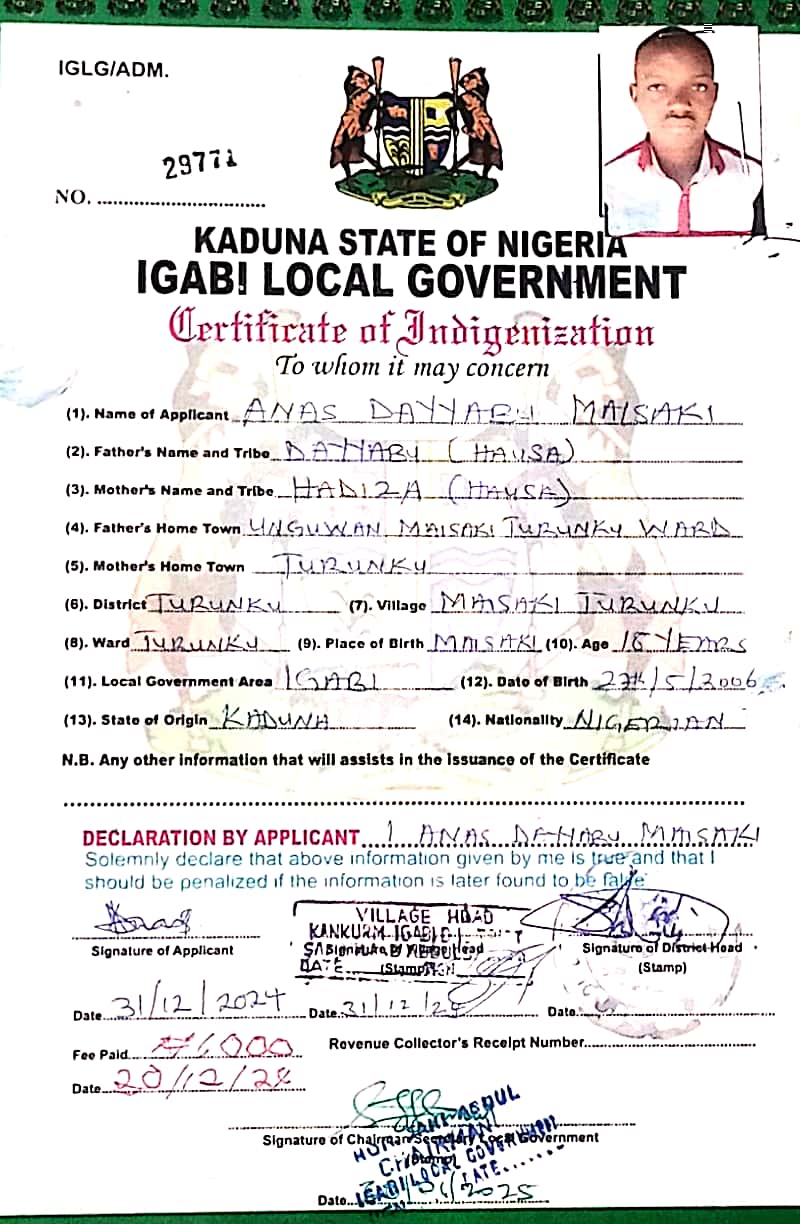 IGLG/ADM.
29771
NO. ..............................
KADUNA STATE OF NIGERIA
IGABI LOCAL GOVERNMENT
Certificate of Indigenization
To whom it may concern
(1). Name of Applicant ANAS DAYYABU MAISAKI
(2). Father's Name and Tribe DAYYABU (HAUSA)
(3). Mother's Name and Tribe HADIZA (HAUSA)
(4). Father's Home Town UNGUWAN MAISAKI TURUNKU WARD
(5). Mother's Home Town TURUNKU
(6). District TURUNKU (7). Village MAISAKI TURUNKU
(8). Ward TURUNKU (9). Place of Birth MAISAKI (10). Age 18 YEARS
(11). Local Government Area IGABI (12). Date of Birth 27th/5/2006
(13). State of Origin KADUNA (14). Nationality NIGERIAN
N.B. Any other information that will assists in the issuance of the Certificate
DECLARATION BY APPLICANT I ANAS DAYYABU MAISAKI
Solemnly declare that above information given by me is true and that I
should be penalized if the information is later found to be false
VILLAGE HEAD
KANKURMI IGABI
DATE
Signature of Applicant Signature of Village Head Signature of District Head
(Stamp) (Stamp)
Date 31/12/2024 Date 31/12/24 Date
Fee Paid ₦1,000 Revenue Collector's Receipt Number
Date 20/12/24
Signature of Chairman/Secretary Local Government
CHAIRMAN
IGABI LOCAL GOVERNMENT
DATE
Date 2025